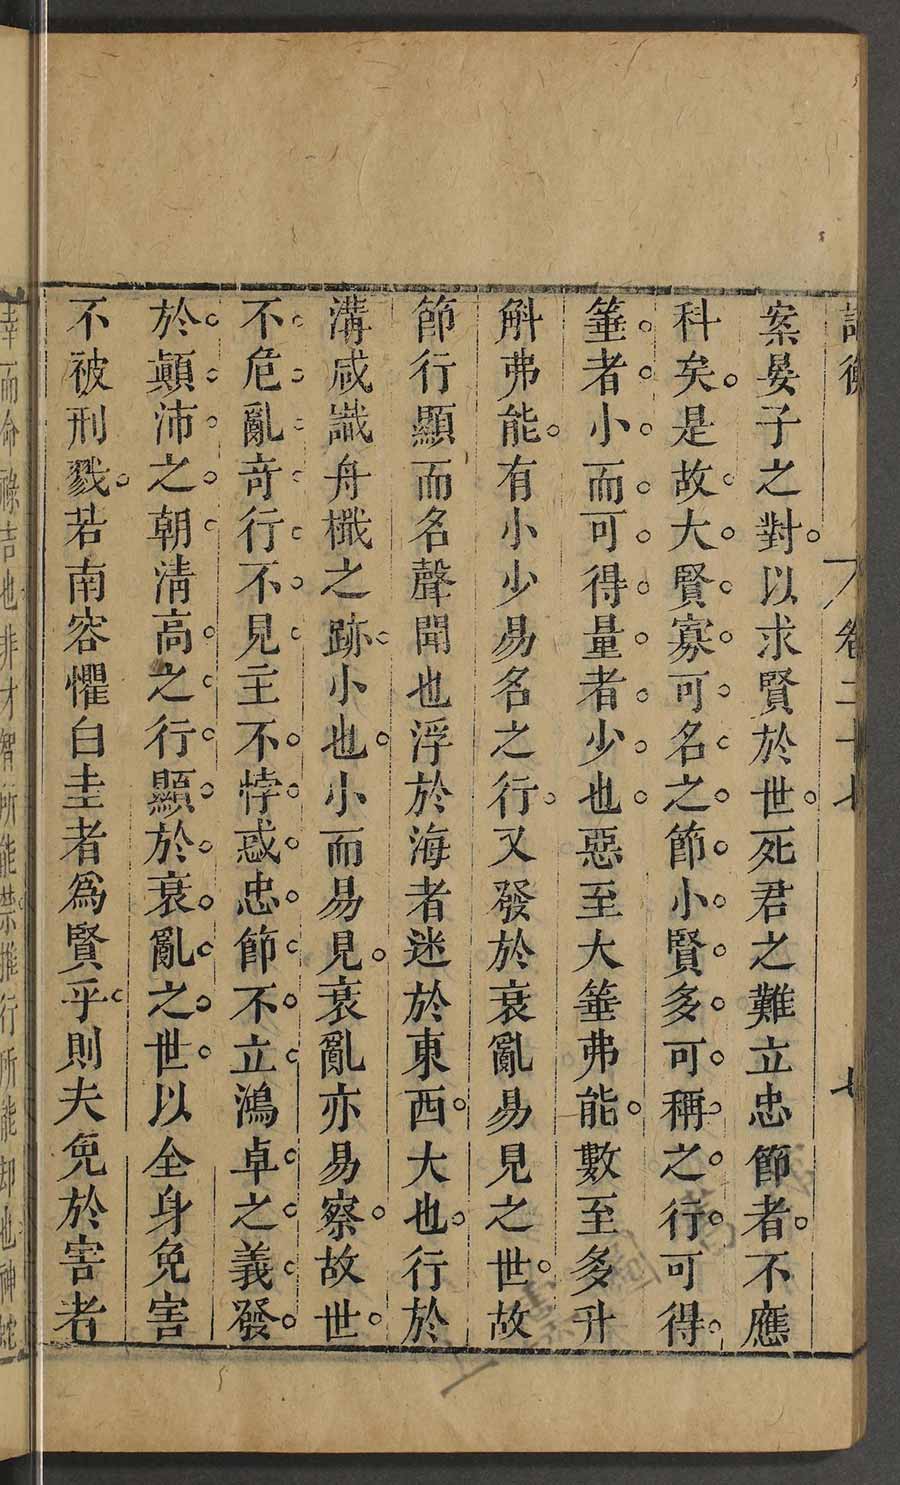 卷二十七 七
案晏子之對以求賢於世死君之難立忠節者不應
科矣是故大賢寡可名之節小賢多可稱之行可得
箠者小而可得量者少也惡至大箠弗能數至多升
斛弗能有小少易名之行又發於衰亂易見之世故
節行顯而名聲聞也浮於海者迷於東西大也行於
溝咸識舟檝之跡小也小而易見衰亂亦易察故世
不危亂竒行不見主不悖惑忠節不立鴻卓之義發
於顛沛之朝清高之行顯於衰亂之世以全身免害
不被刑戮若南容懼白圭者為賢乎則夫免於害者
幸而命祿吉也非才智所能禁推行所能却也神蛇